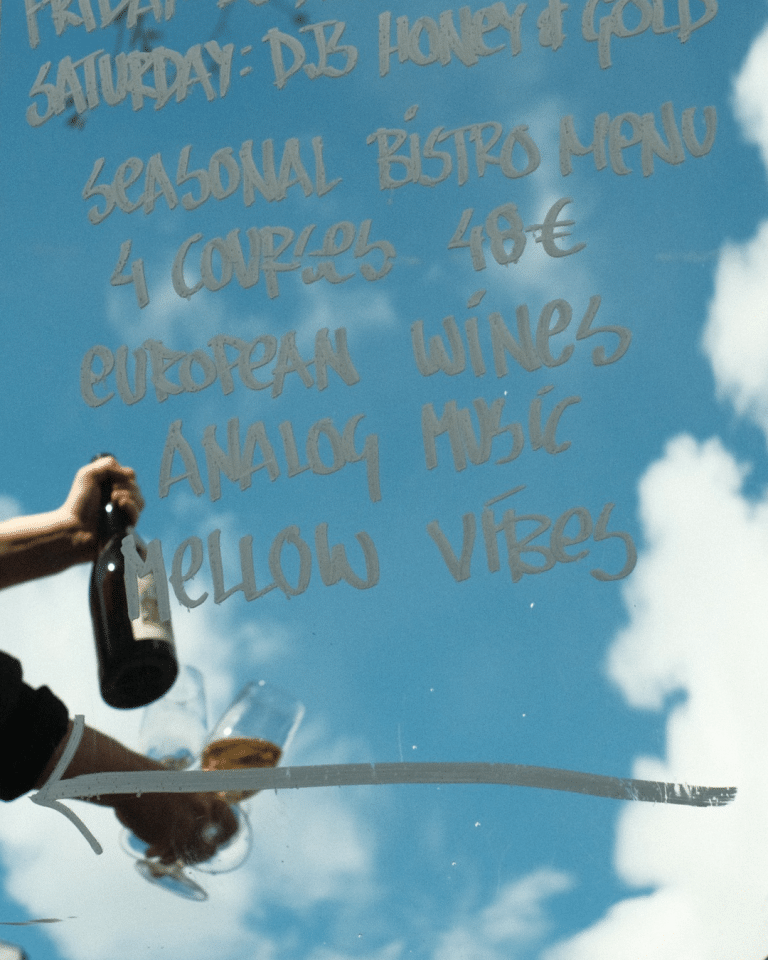 FRIDAY
SATURDAY: DJS HONEY & GOLD
SEASONAL BISTRO MENU
4 COURSES 48€
EUROPEAN WINES
ANALOG MUSIC
MELLOW VIBES